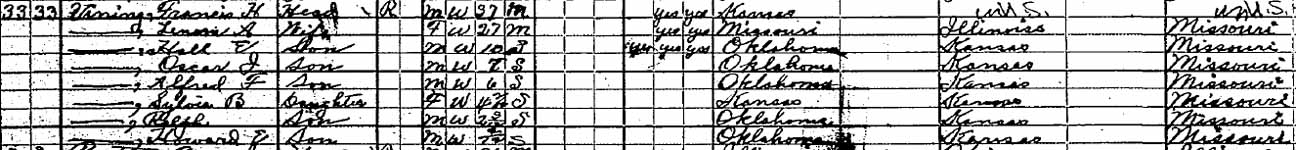 33 33 Francis H Head R M W 37 M yes yes Kansas U.S. U.S.
Wife F W 27 M yes yes Missouri Illinois Missouri
Hall E Son M W 10 S yes yes yes Oklahoma Kansas Missouri
Oscar J Son M W 7 S Oklahoma Kansas Missouri
Alfred F Son M W 6 S Oklahoma Kansas Missouri
Sylvia B Daughter F W S Kansas Kansas Missouri
Son M W S Oklahoma Kansas Missouri
Howard E Son M W S Oklahoma Kansas Missouri